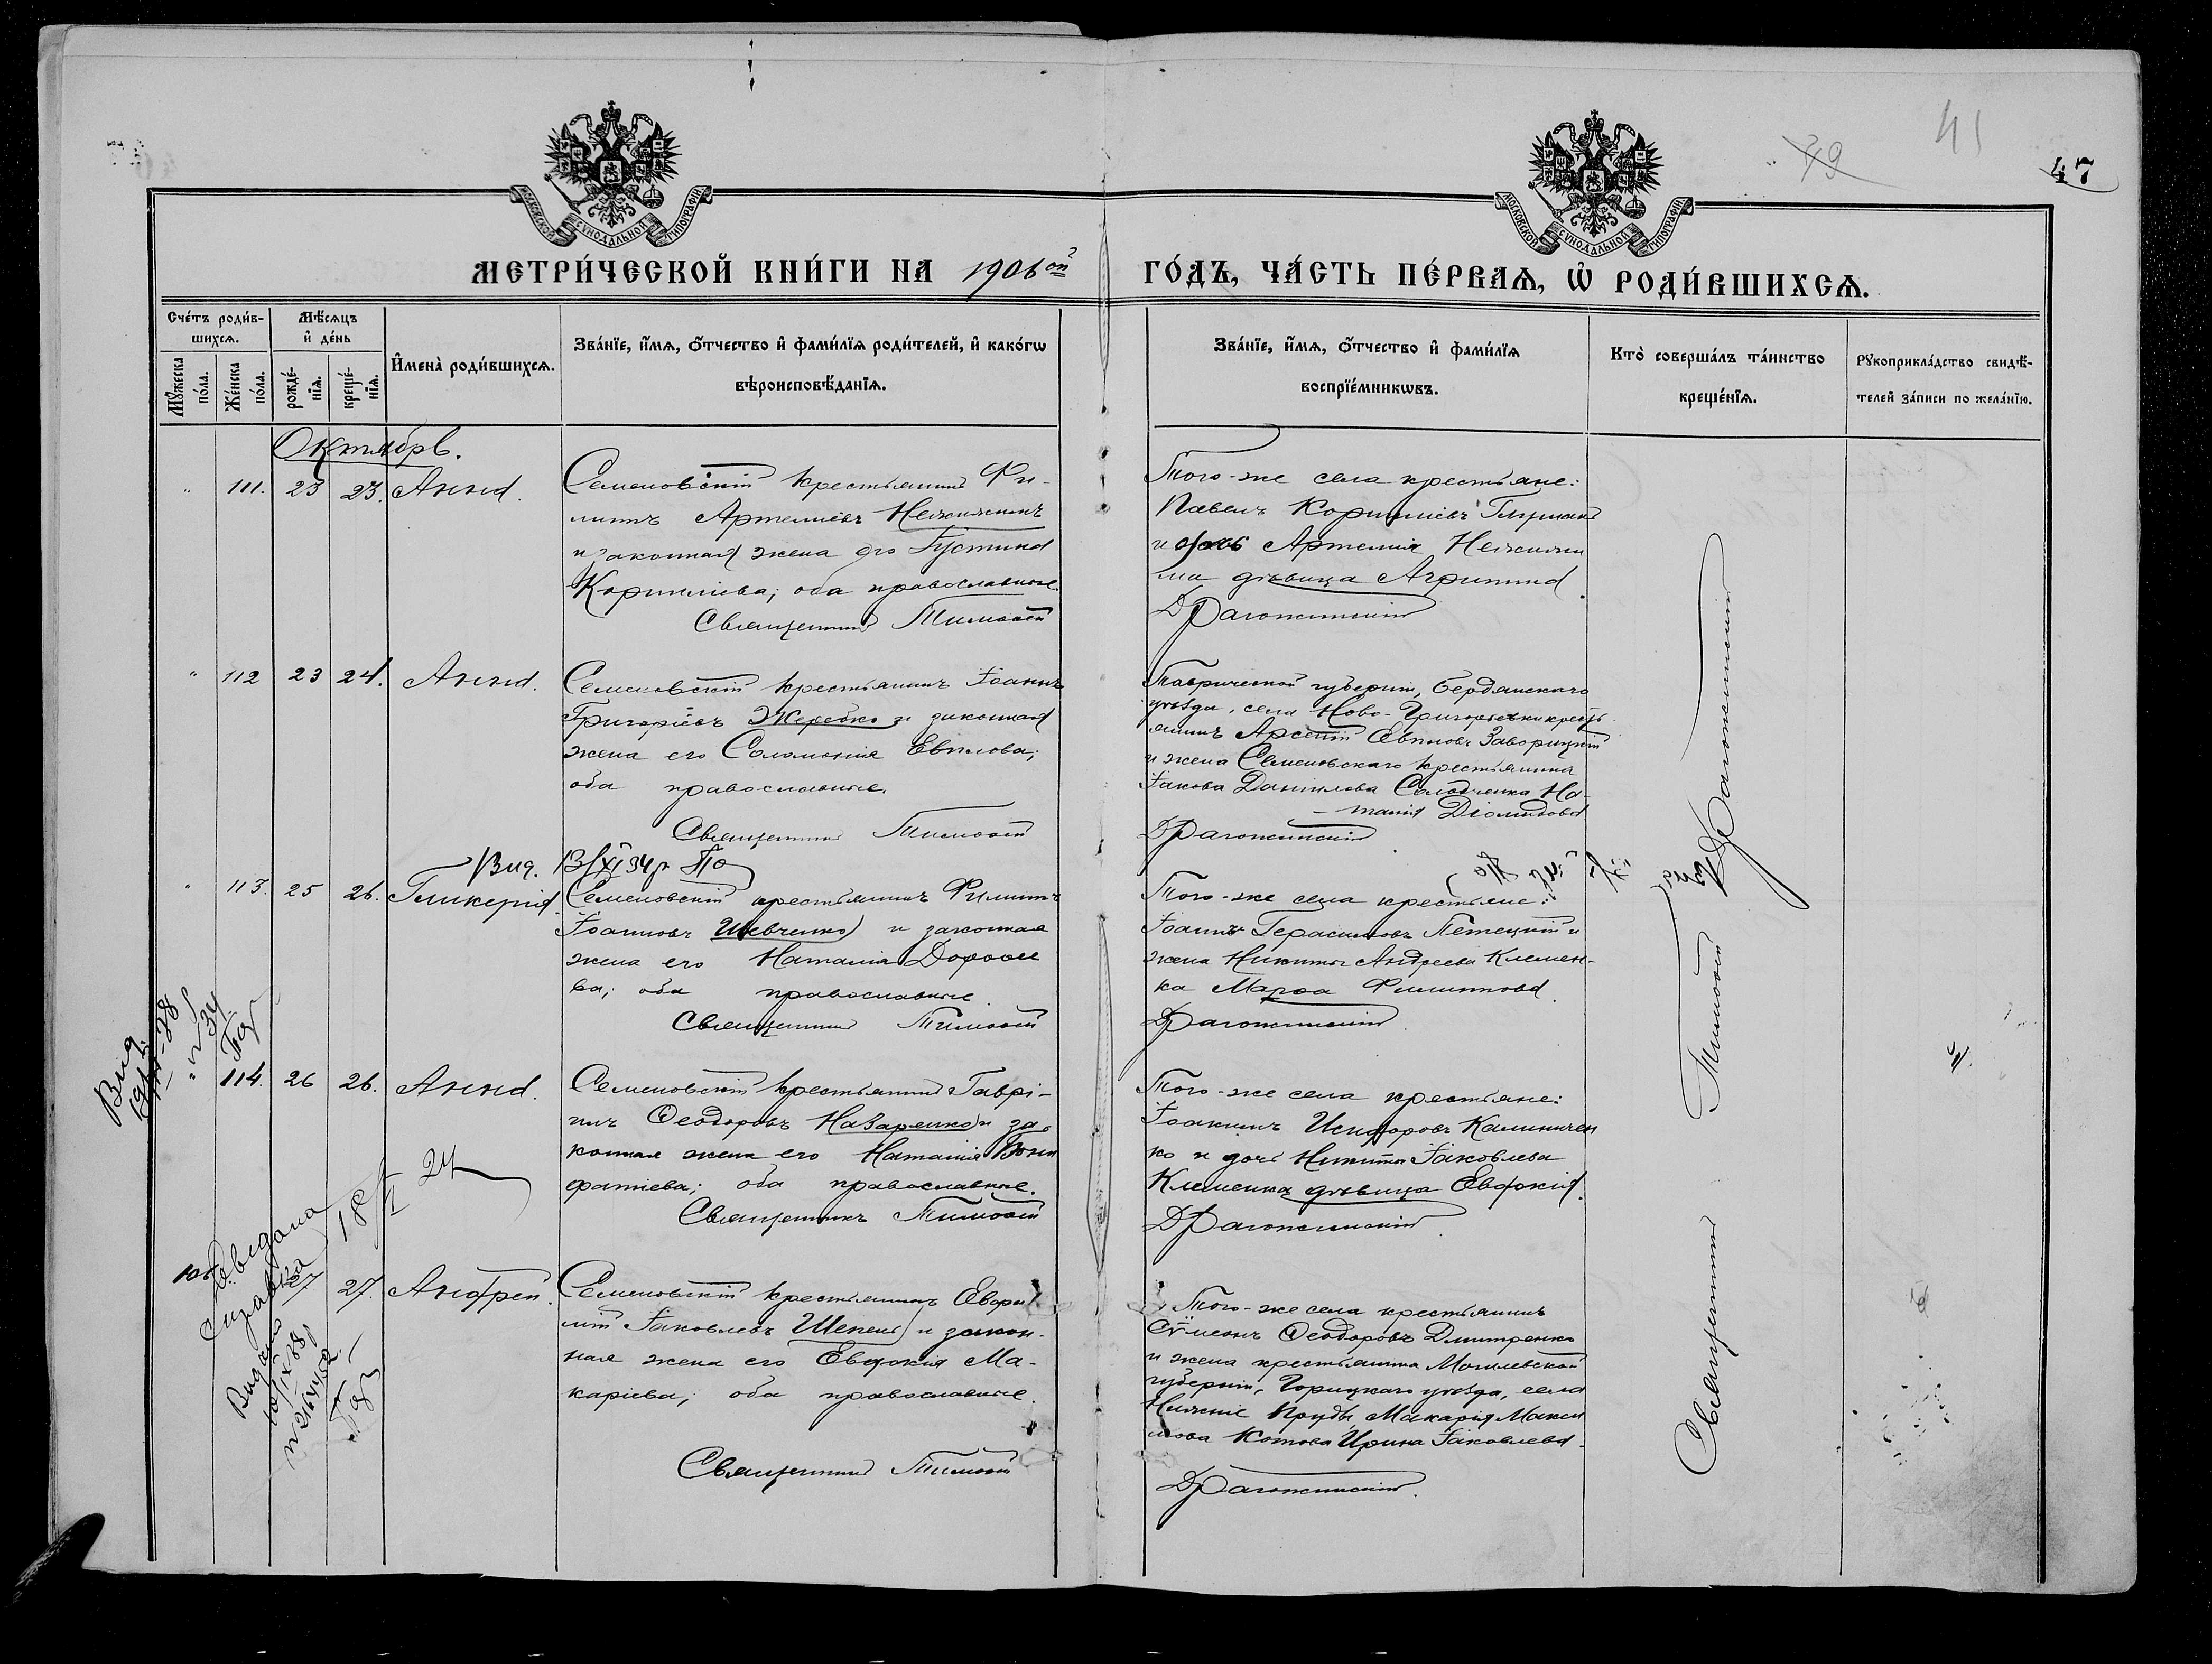 41
47
МОСКОВСКОЙ СУНОДАЛЬНОЙ ТИПОГРАФІИ
МОСКОВСКОЙ СУНОДАЛЬНОЙ ТИПОГРАФІИ
МЕТРИ́ЧЕСКОЙ КНИ́ГИ НА 1906ой ГО́ДЪ, ЧА́СТЬ ПЕ́РВАѦ, Ѡ҆ РОДИ́ВШИХСѦ.
Сче́тъ роди́в-
шихсѧ.
Мѣ́сѧцъ
и҆ де́нь
Мꙋ́жеска по́ла.
Же́нска по́ла.
рожде́-нїѧ.
креще́-нїѧ.
И҆мена̀ роди́вшихсѧ.
Зва́нїе, и҆́мѧ, о҆́тчество и҆ фами́лїѧ роди́телей, и҆ како́гѡ
вѣроисповѣ́данїѧ.
Зва́нїе, и҆́мѧ, о҆́тчество и҆ фами́лїѧ
воспрїе́мникѡвъ.
Кто̀ соверша́лъ та́инство
креще́нїѧ.
Рꙋкоприкла́дство свидѣ́-
телей за́писи по жела́нїю.
Октябрь.
" 111. 23 23. Анна.
Семеновскій крестьянинъ Фи-
липпъ Артеміевъ
и законная жена его Іустина
Корниліева; оба православные.
Священникъ Тимоѳей
Того-же села крестьяне:
Павелъ Корниліевъ
и дочь Артемія
дѣвица Агриппина.
Драгожинскій
" 112 23 24. Анна.
Семеновскій крестьянинъ Іоаннъ
Григоріевъ Жеребко и законная
жена его Соломонія Евплова;
оба православные.
Священникъ Тимоѳей
Таврической губерніи, Бердянскаго
уѣзда, села Ново-Григорьевки кресть
янинъ Арсеній Евпловъ Заворицкій
и жена Семеновскаго крестьянина
Іакова Данилова Солодченка На-
талія Діомидова
Драгожинскій
Вид. 13/XI 34 р
" 113. 25 26. Гликерія.
Семеновскій крестьянинъ Филиппъ
Іоанновъ Шевченко и законная
жена его Наталія Дороѳе
ва; оба православные.
Священникъ Тимоѳей
Того-же села крестьяне:
Іоаннъ Герасимовъ Петецкій и
жена Никиты Андреева Клемен-
ка Марѳа Филиппова.
Драгожинскій.
Вид.
" 114. 26 26. Анна.
Семеновскій крестьянинъ Гаврі-
илъ Ѳеодоровъ Назаренко и за-
конная жена его Наталія Вони
фатіева; оба православные.
Священникъ Тимоѳей
Того-же села крестьяне:
Іоакимъ Исидоровъ Калиничен
ко и дочь Никиты Іаковлева
Клименка дѣвица Евдокія.
Драгожинскій.
27 27. Андрей.
Семеновскій крестьянинъ Евѳи
мій Іаковлевъ Шепель и закон-
ная жена его Евдокія Ма-
каріева; оба православные.
Священникъ Тимоѳей
Того-же села крестьянинъ
Сѵмеонъ Ѳеодоровъ Дмитренко
и жена крестьянина Могилевской
губерніи, Горицкаго уѣзда, села
Нижніе Пруды, Макарія Макси
мова Котова Ирина Іаковлева.
Драгожинскій.
Священникъ Тимоѳей Драгожинскій